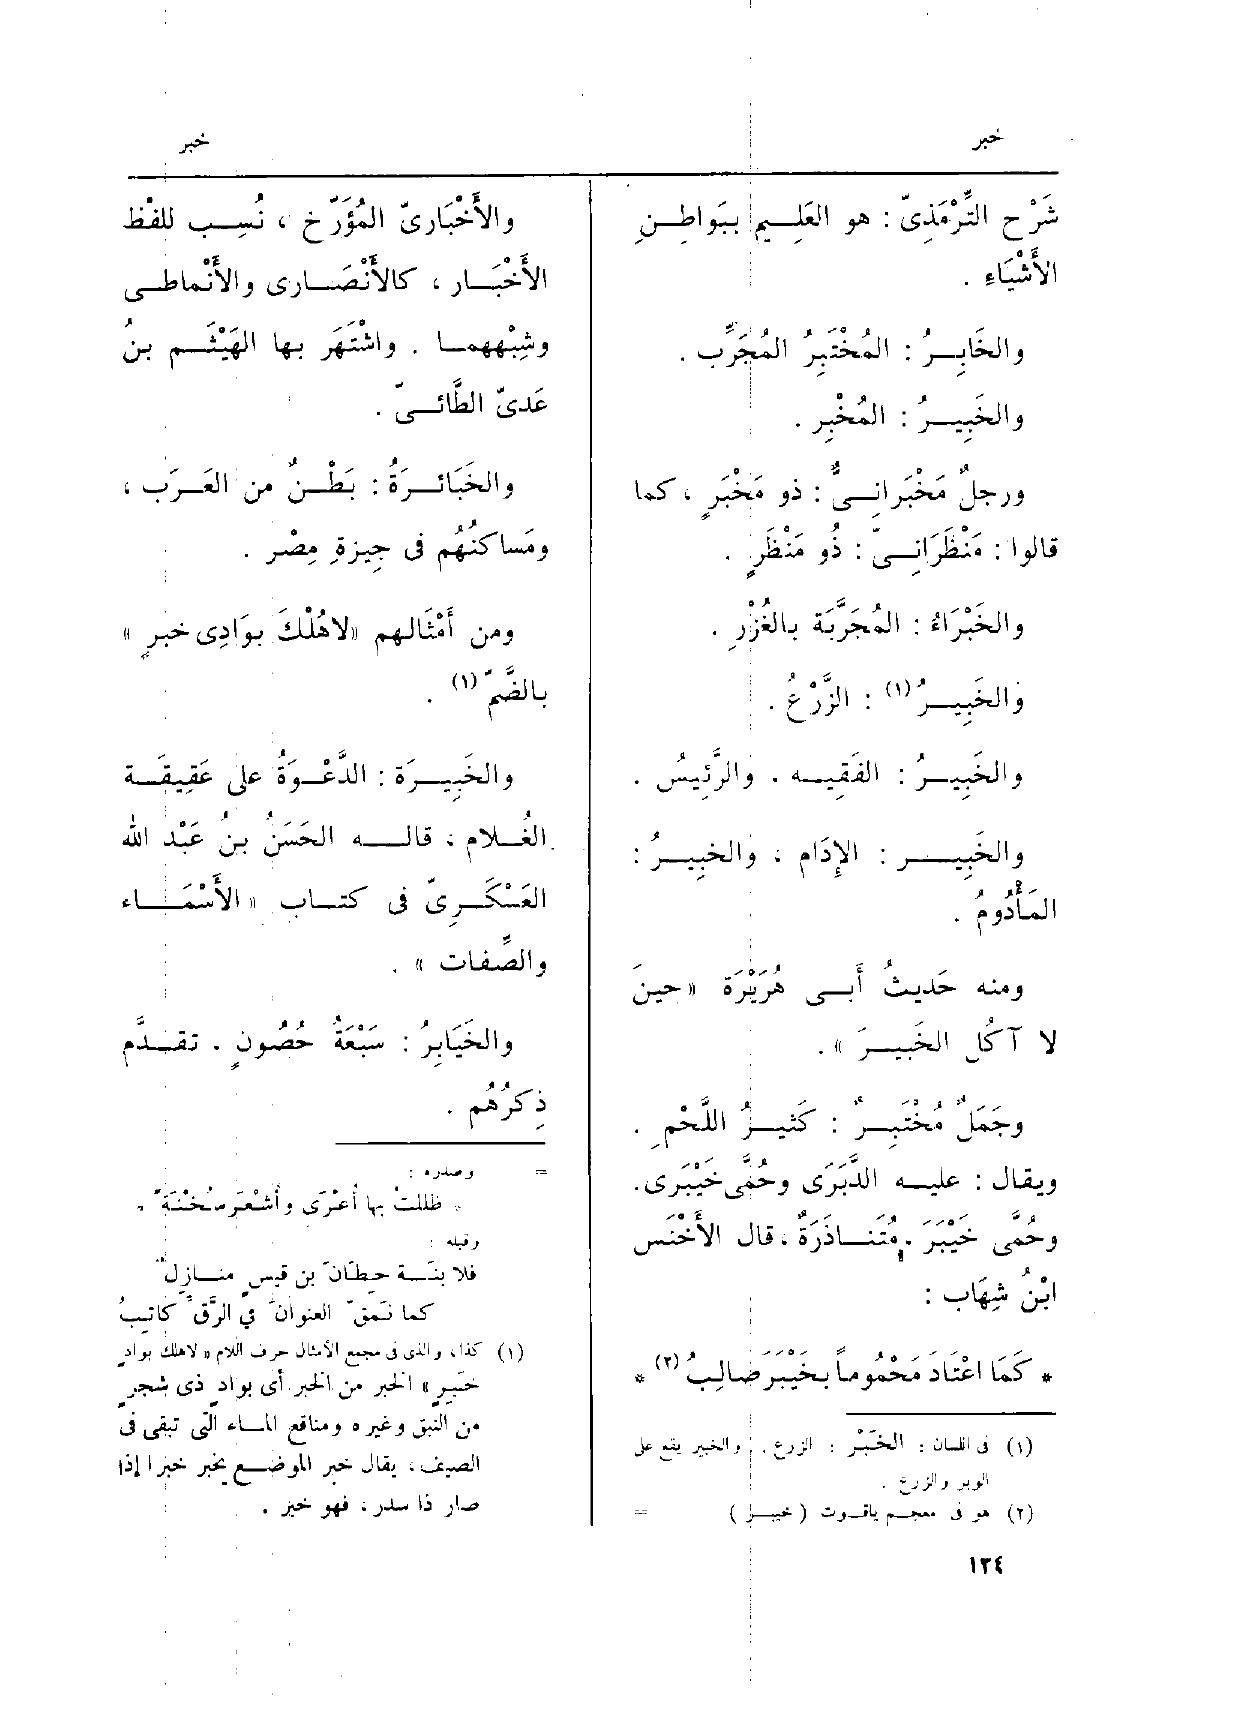 خبر
خبر
شَرْح التِّرْمَذِىّ : هو العَلِـيم بِبَواطِـنِ
الأَشْيَاءِ .
والخَابِـرُ : المُخْتَبِرُ المُجَرِّب .
والخَبِيـرُ : المُخْبِر .
ورجلٌ مَخْبَرانِـىٌّ : ذو مَخْبَرٍ ، كما
قالوا : مَنْظَرَانِـىّ : ذُو مَنْظَرٍ .
والخَبْرَاءُ : المُجَرَّبَة بالغُزْرِ .
والخَبِيـرُ (١) : الزَّرْعُ .
والخَبِيـرُ : الفَقِيـه . والرَّئِيسُ .
والخَبِيـر : الإِدَام ، والخَبِيـرُ :
المَأْدُومُ .
ومنه حَدِيثُ أَبـى هُرَيْرَة « حينَ
لا آكُل الخَبِيـرَ » .
وجَمَلٌ مُخْتَبِـرٌ : كَثِيـرُ اللَّحْمِ .
ويقال : عليـه الدَّبَرَى وحُمَّى خَيْبَرَى.
وحُمَّى خَيْبَرَ . مُتَنـاذَرَةٌ ، قال الأَخْنَس
ابْنُ شِهَاب :
* كَمَا اعْتَادَ مَحْمُوماً بِخَيْبَرَ صَالِبُ (٢) *
(١) فى اللسان : الخَبْر : الزرع . والخبير يقع على
الوبر والزرع .
(٢) هو فى معجم ياقوت ( خيبـر ) =
والأَخْبَارىّ المُؤَرِّخ ، نُسِـب للفْظ
الأَخْبَـار ، كالأَنْصَـارى والأَنْماطـى
وشِبْههمـا . واشْتَهَر بها الهَيْثَـم بنُ
عَدىّ الطَّائـىّ .
والخَبَائـرَةُ : بَطْـنٌ من العَـرَب ،
ومَساكنُهُم فى جِيزةِ مِصْر .
ومن أَمْثَالهم «لاهُلْكَ بوَادِى خبرٍ »
بالضَّمّ (١) .
والخَبِيـرَة : الدَّعْـوَةُ على عَقِيقَـة
الغُـلام ، قالـه الحَسَنُ بنُ عَبْد الله
العَسْكَـرِىّ فى كتـاب « الأَسْمَـاء
والصِّفات » .
والخَيَابِرُ : سَبْعَةُ حُصُونٍ . تقـدَّم
ذِكرُهُم .
= وصدره :
* ظللتُ بها أُعْرَى وأُشْعَرُ سُخْنَةً *
وقبله :
فلابنَـة حِطّانَ بن قيسٍ منـازِلٌ
كما نَمقّ العنوانَ في الرَّق كاتِبُ
(١) كذا، والذى فى مجمع الأمثال حرف اللام « لاهلك بوادٍ
خَبِرٍ » الخبر من الخبر. أى بوادٍ ذى شجرٍ
من النبق وغيره ومناقع المـاء التى تبقى فى
الصيف ، يقال خبر الموضـع يخبر خبرا إذا
صار ذا سدر ، فهو خبر .
١٣٤